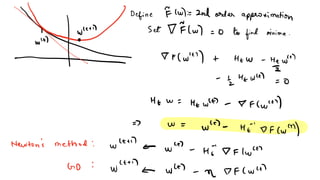 w^(t)
w^(t+1)
Define F̃(w) = 2nd order approximation
Set ∇F̃(w) = 0 to find minima.
∇F(w^(t)) + H_t w - H_t w^(t)/2
- 1/2 H_t w^(t) = 0
H_t w = H_t w^(t) - ∇F(w^(t))
⇒ w = w^(t) - H_t^-1 ∇F(w^(t))
Newton's method: w^(t+1) ← w^(t) - H_t^-1 ∇F(w^(t))
GD: w^(t+1) ← w^(t) - η ∇F(w^(t))